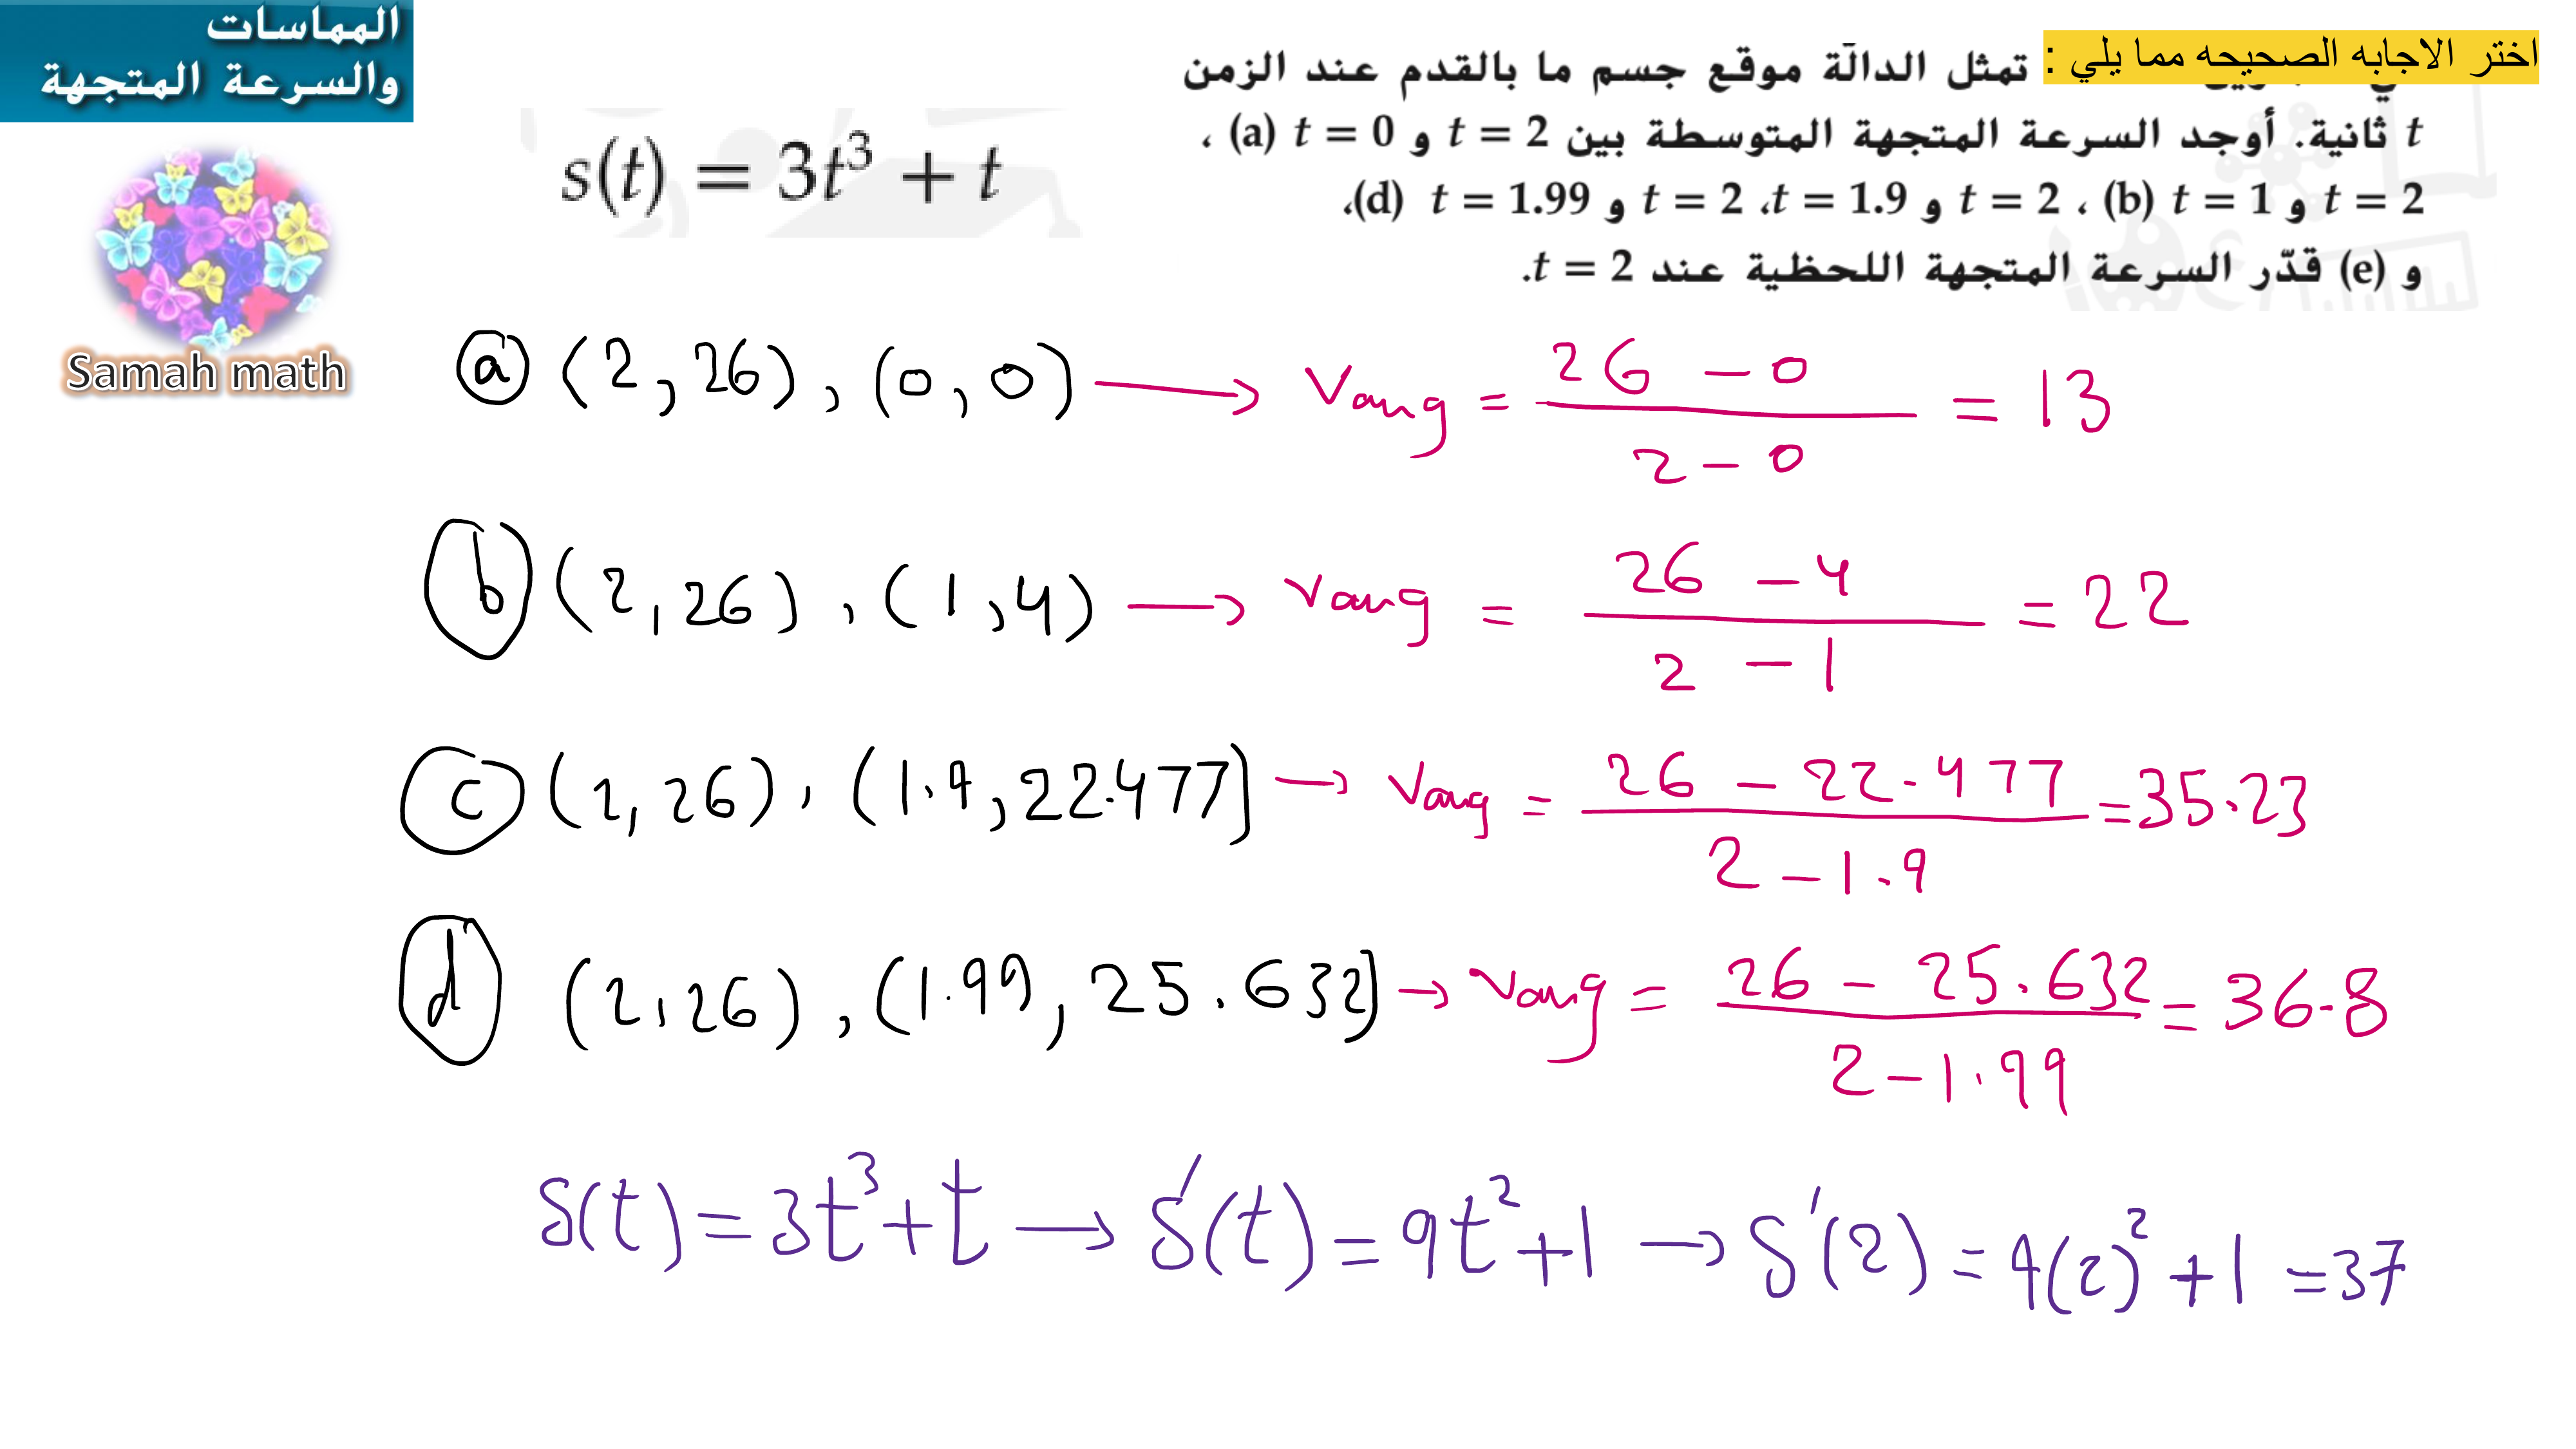 المماسات
والسرعة المتجهة
Samah math
اختر الاجابه الصحيحه مما يلي :
تمثل الدالّة موقع جسم ما بالقدم عند الزمن
t ثانية. أوجد السرعة المتجهة المتوسطة بين t = 2 و t = 0 (a) ،
t = 2 و t = 1 (b) ، t = 2 و t = 1.9، t = 2 و t = 1.99 (d)،
و (e) قدّر السرعة المتجهة اللحظية عند t = 2.
s(t) = 3t³ + t
a (2,26), (0,0) → Vavg = 26 − 0 / 2 − 0 = 13
b (2,26), (1,4) → Vavg = 26 − 4 / 2 − 1 = 22
c (2,26), (1.9,22.477) → Vavg = 26 − 22.477 / 2 − 1.9 = 35.23
d (2,26), (1.99,25.632) → Vavg = 26 − 25.632 / 2 − 1.99 = 36.8
S(t) = 3t³ + t → S'(t) = 9t² + 1 → S'(2) = 9(2)² + 1 = 37